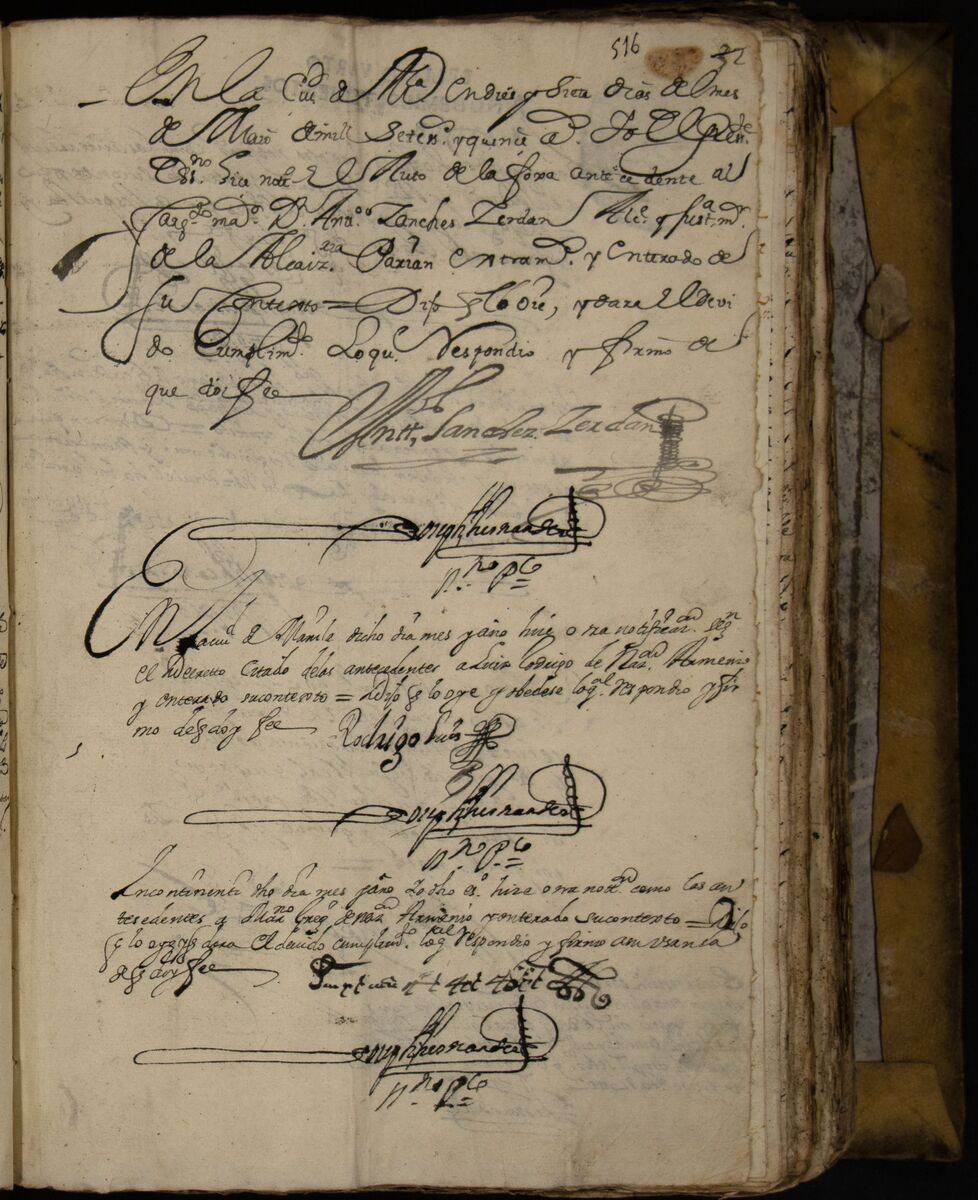 516 32
En la Ciud. de Mla. en dies y siete dias del mes
de Maio de mill setesͭ. y quince aͫ. Yo el pres.te
Ess.no hize notⁿ. el Auto de la foxa antecedente al
Sarg.to ma.or D.n Ant.o Sanches Zerdan Alc.e y Just.a m.r
de la Alcaiz.ria Parian extram.s y enterado de
su contexto = Dijo q lo oie, y dara el devi
do cumplim.to lo qu.e respondio y firmo de
que doi fee
Antt.o Sanchez Zerdan
Joseph hernandez
n.rio p.co
En la ciud de Manila dicho dia mes y año hize otra notificaz.on seg.n
el decretto citado de los antecedentes a Luis Rodrigo de naz.on Armenio
y enterado su contexto = Dijo q lo oye y obedese lo q.l respondio y fir
mo de q doy fee
Rodrigo Luis
Joseph hernandez
n.rio p.co
Incontinenti dho dia mes y año Yo dho es.no hize otra not.on como las an
tesedentes a Mar.no Greg.o de naz.on Armenio y enterado su contexto = Dijo
q lo oye y dara el devido cumplim.to lo q.al respondio y firmo a su usansa
de q doy fee
Joseph hernandez
n.rio p.co